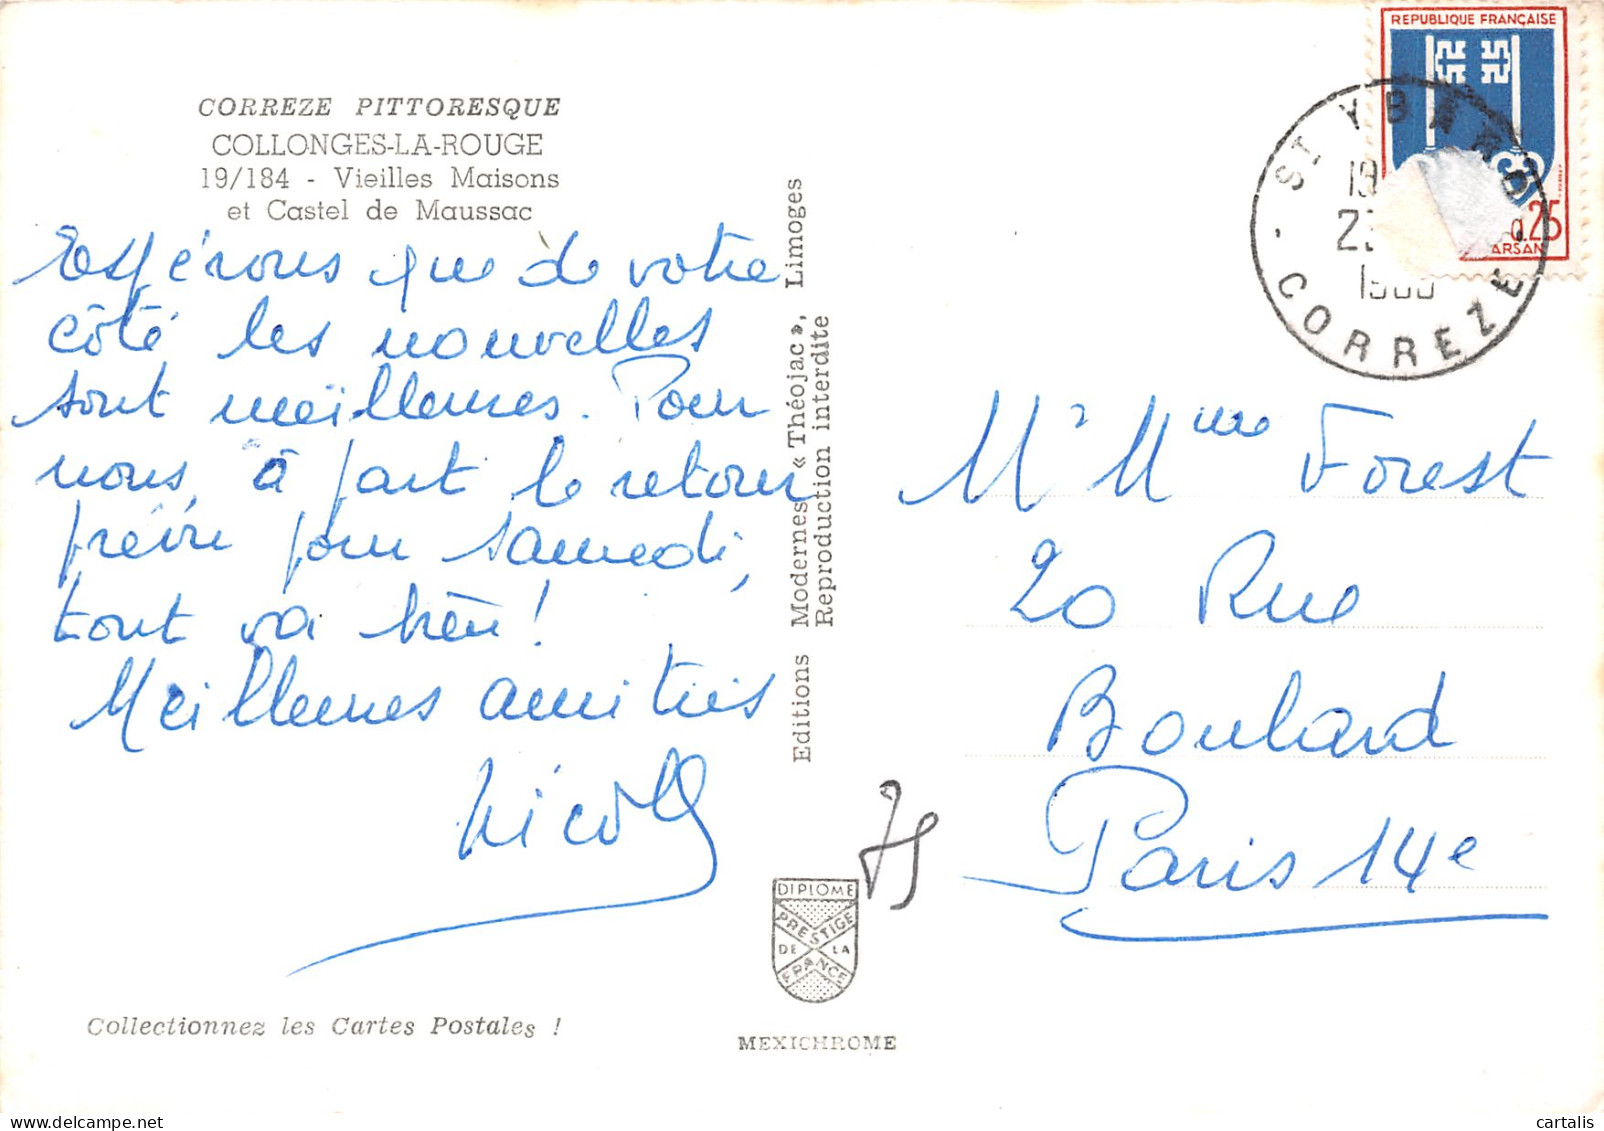 CORREZE PITTORESQUE
COLLONGES-LA-ROUGE
19/184 - Vieilles Maisons
et Castel de Maussac
Espérons que de votre
côté les nouvelles
sont meilleures. Pour
nous, à part le retour
prévu pour samedi,
tout va bien!
Meilleures amitiés
Nicole
Collectionnez les Cartes Postales !
Editions Modernes « Théojac », Limoges
Reproduction interdite
75
DIPLOME
PRESTIGE
DE LA
FRANCE
MEXICHROME
REPUBLIQUE FRANÇAISE
0.25
ST YBARD
CORREZE
Mr Mme Forest
20 Rue
Boulard
Paris 14e
cartalis